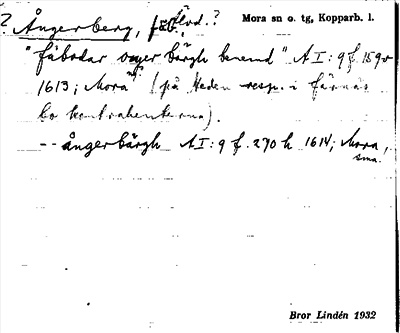 ? Ångerberg, fäb., Älvd.? Mora sn o. tg, Kopparb. l.
"fäbodar onger bärgh benemd" A I: 9 f. 159v
1613; Mora (på Heden resp. i Färnäs
bo kontrahenterna).
-- ångerbärgh A I: 9 f. 270 h 1614; Mora,
sma.
Bror Lindén 1932